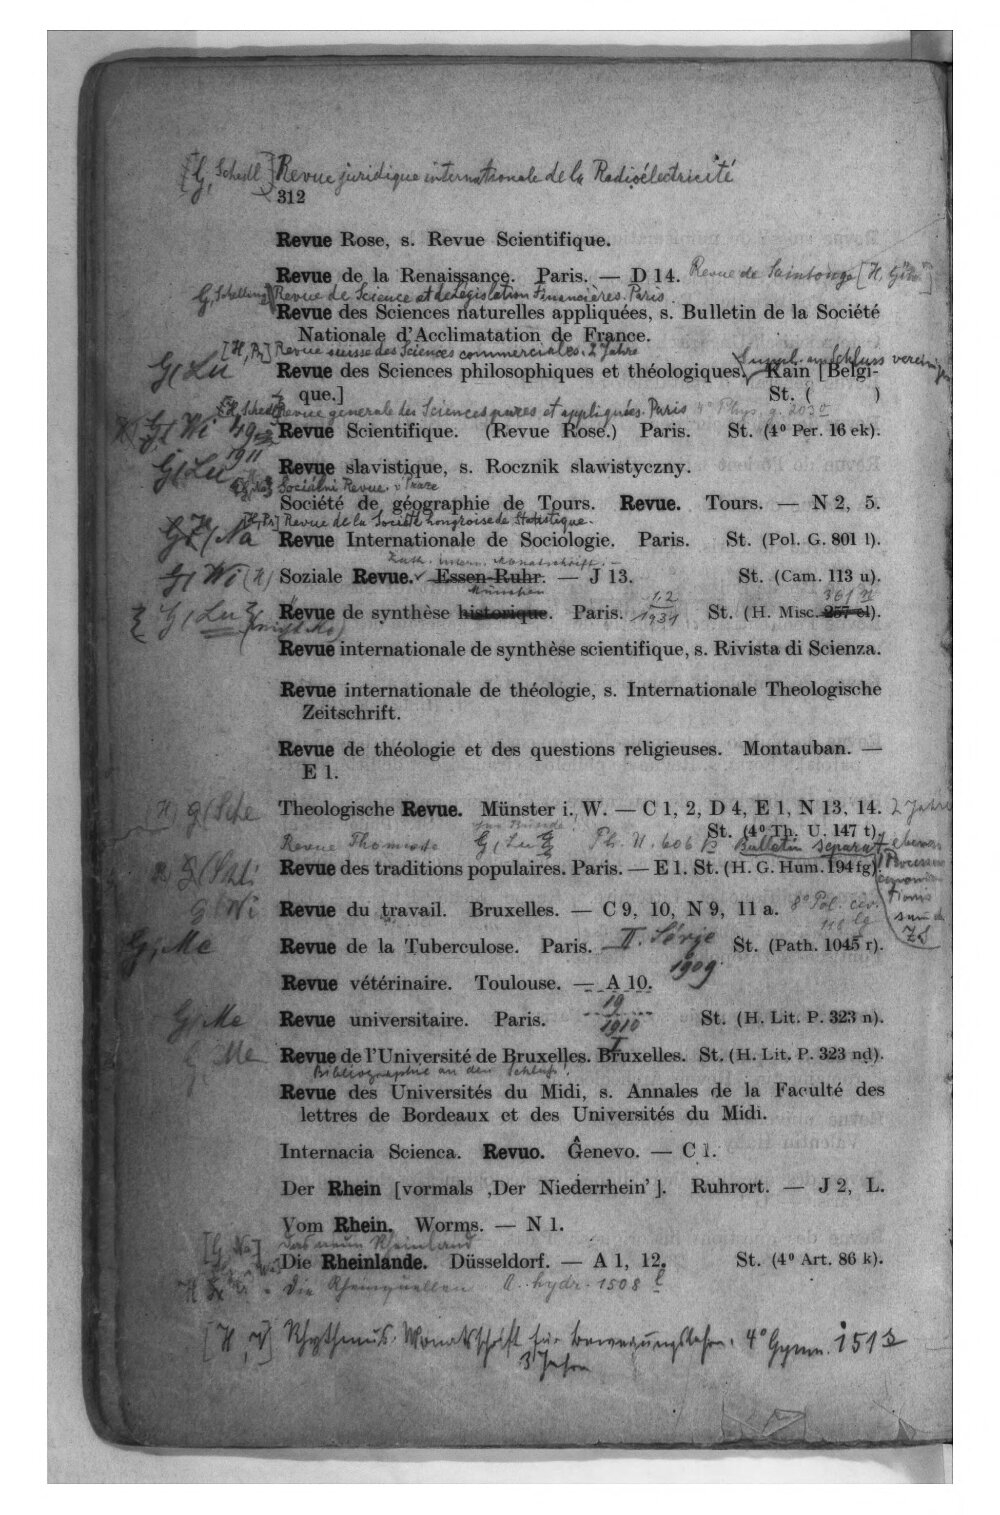 [G, Schedl] Revue juridique internationale de la Radioélectricité
312
Revue Rose, s. Revue Scientifique.
Revue de la Renaissance. Paris. — D 14. Revue de Saintonge
G, Schelling Revue de Science et de Législation Financières. Paris
Revue des Sciences naturelles appliquées, s. Bulletin de la Société
Nationale d'Acclimatation de France.
[H, Pr] Revue suisse des Sciences commerciales. 2 Jahre
G/Lu Revue des Sciences philosophiques et théologiques. Kain [Belgi-
que.] St. ( )
Revue generale des Sciences pures et appliquées. Paris 4° Phys. g. 203
G/Wi Revue Scientifique. (Revue Rose.) Paris. St. (4⁰ Per. 16 ek).
1911
G/Lu Revue slavistique, s. Rocznik slawistyczny.
Sociální Revue.
Société de géographie de Tours. Revue. Tours. — N 2, 5.
[H, Pr] Revue de la Société hongroise de Statistique.
Na Revue Internationale de Sociologie. Paris. St. (Pol. G. 801 l).
G/Wi (H) Soziale Revue. Essen-Ruhr. — J 13. St. (Cam. 113 u).
München
1.2
361 n
G/Lu Revue de synthèse historique. Paris. 1931 St. (H. Misc. 257 el).
Revue internationale de synthèse scientifique, s. Rivista di Scienza.
Revue internationale de théologie, s. Internationale Theologische
Zeitschrift.
Revue de théologie et des questions religieuses. Montauban. —
E 1.
H, G/Sche Theologische Revue. Münster i. W. — C 1, 2, D 4, E 1, N 13, 14. 2 Jahre
St. (4⁰ Th. U. 147 t).
Revue Thomiste G/Lu Ph. U. 606 Bulletin separat
Revue des traditions populaires. Paris. — E 1. St. (H. G. Hum. 194 fg).
G/Wi Revue du travail. Bruxelles. — C 9, 10, N 9, 11 a. 8° Pol. civ.
118
G, Me Revue de la Tuberculose. Paris. II. Série St. (Path. 1045 r).
1909
Revue vétérinaire. Toulouse. — A 10.
19
G/Me Revue universitaire. Paris. 1910 St. (H. Lit. P. 323 n).
I
G, Me Revue de l'Université de Bruxelles. Bruxelles. St. (H. Lit. P. 323 nd).
Bibliographie an den Schluß!
Revue des Universités du Midi, s. Annales de la Faculté des
lettres de Bordeaux et des Universités du Midi.
Internacia Scienca. Revuo. Ĝenevo. — C 1.
Der Rhein [vormals ‚Der Niederrhein']. Ruhrort. — J 2, L.
Vom Rhein. Worms. — N 1.
[G, Na] Das neue Rheinland
Die Rheinlande. Düsseldorf. — A 1, 12. St. (4⁰ Art. 86 k).
Die Rheinquellen hydr. 1508
[H, V] Rhythmus. Monatsschrift für Bewegungslehre. 4° Gymn. 151
3 Jahre